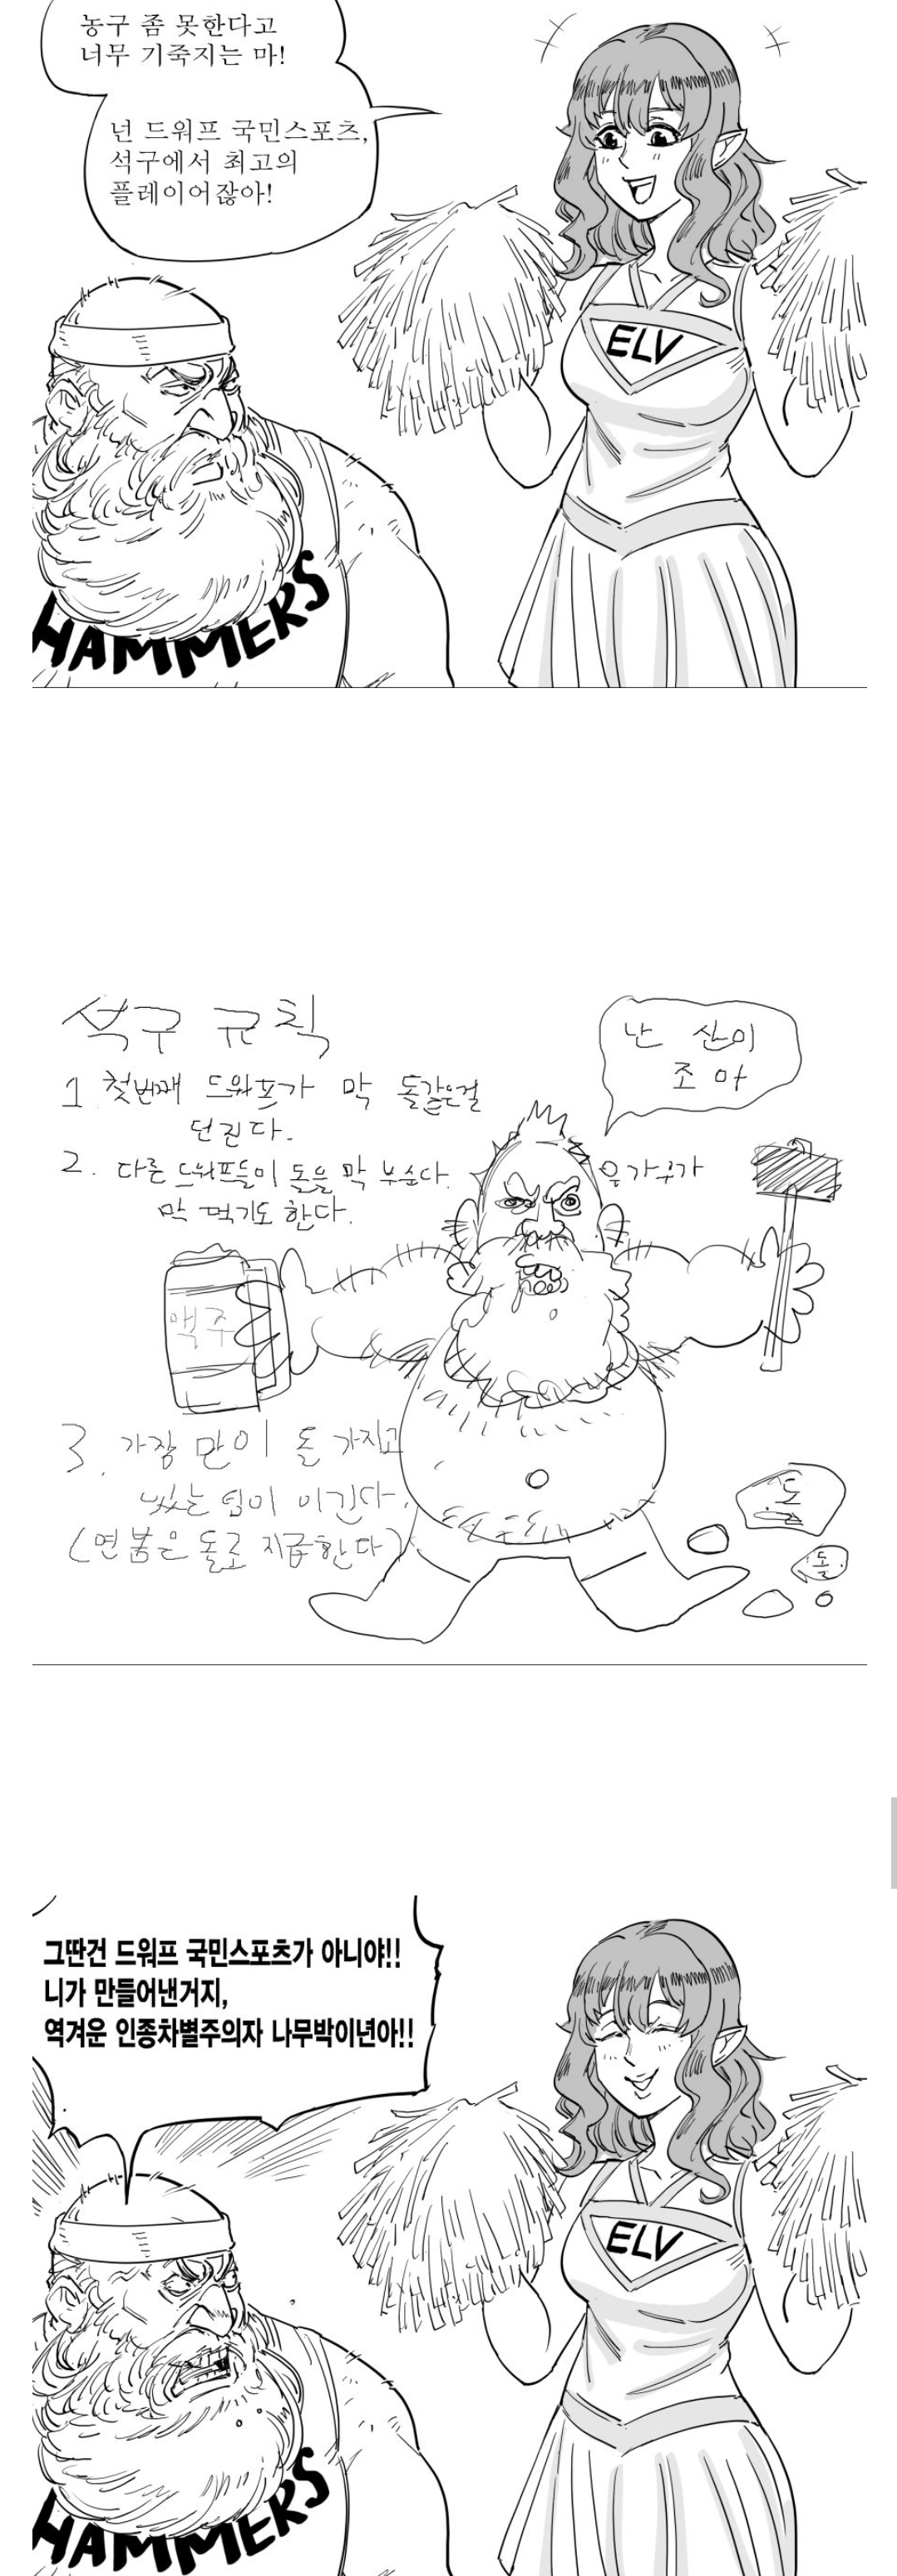 농구 좀 못한다고
너무 기죽지는 마!
넌 드워프 국민스포츠,
석구에서 최고의
플레이어잖아!
ELV
HAMMERS
석구 규칙
난 산이
조아
1 첫번째 드워프가 막 돌같은걸
던진다.
2. 다른 드워프들이 돌을 막 부순다.
막 먹기도 한다.
맥주
3. 가장 만이 돌 가지고
있는 팀이 이긴다.
(연봄은 돌로 지급한다)
돌
돌
그딴건 드워프 국민스포츠가 아니야!!
니가 만들어낸거지,
역겨운 인종차별주의자 나무박이년아!!
ELV
HAMMERS